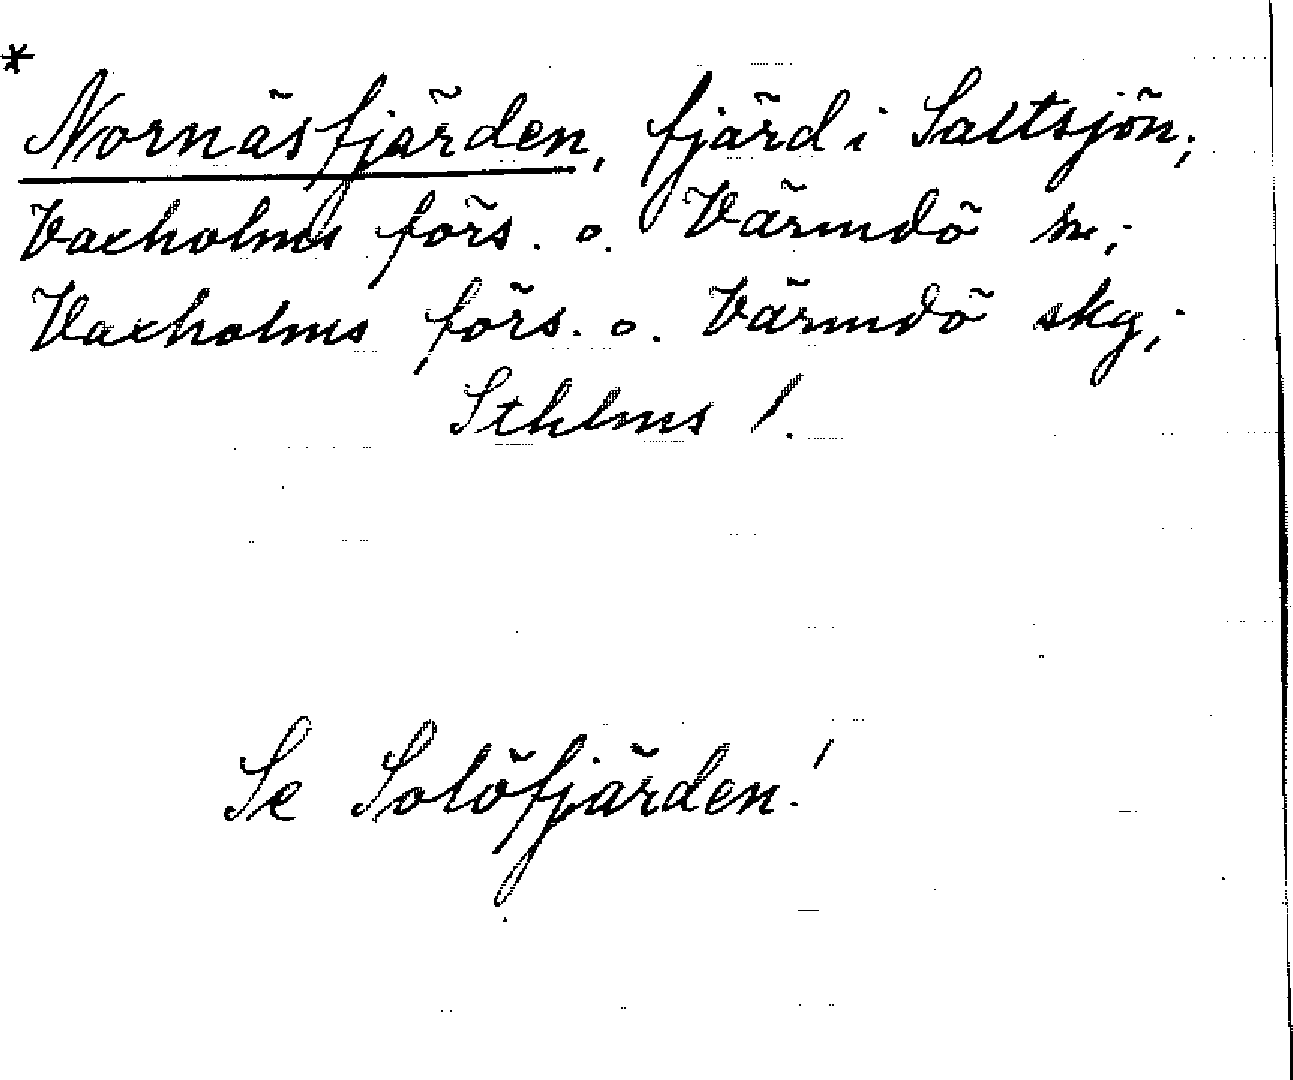 *
Nornäsfjärden, fjärd i Saltsjön;
Vaxholms förs. o. Värmdö sn;
Vaxholms förs. o. Värmdö skg;
Sthlms l.
Se Solöfjärden!